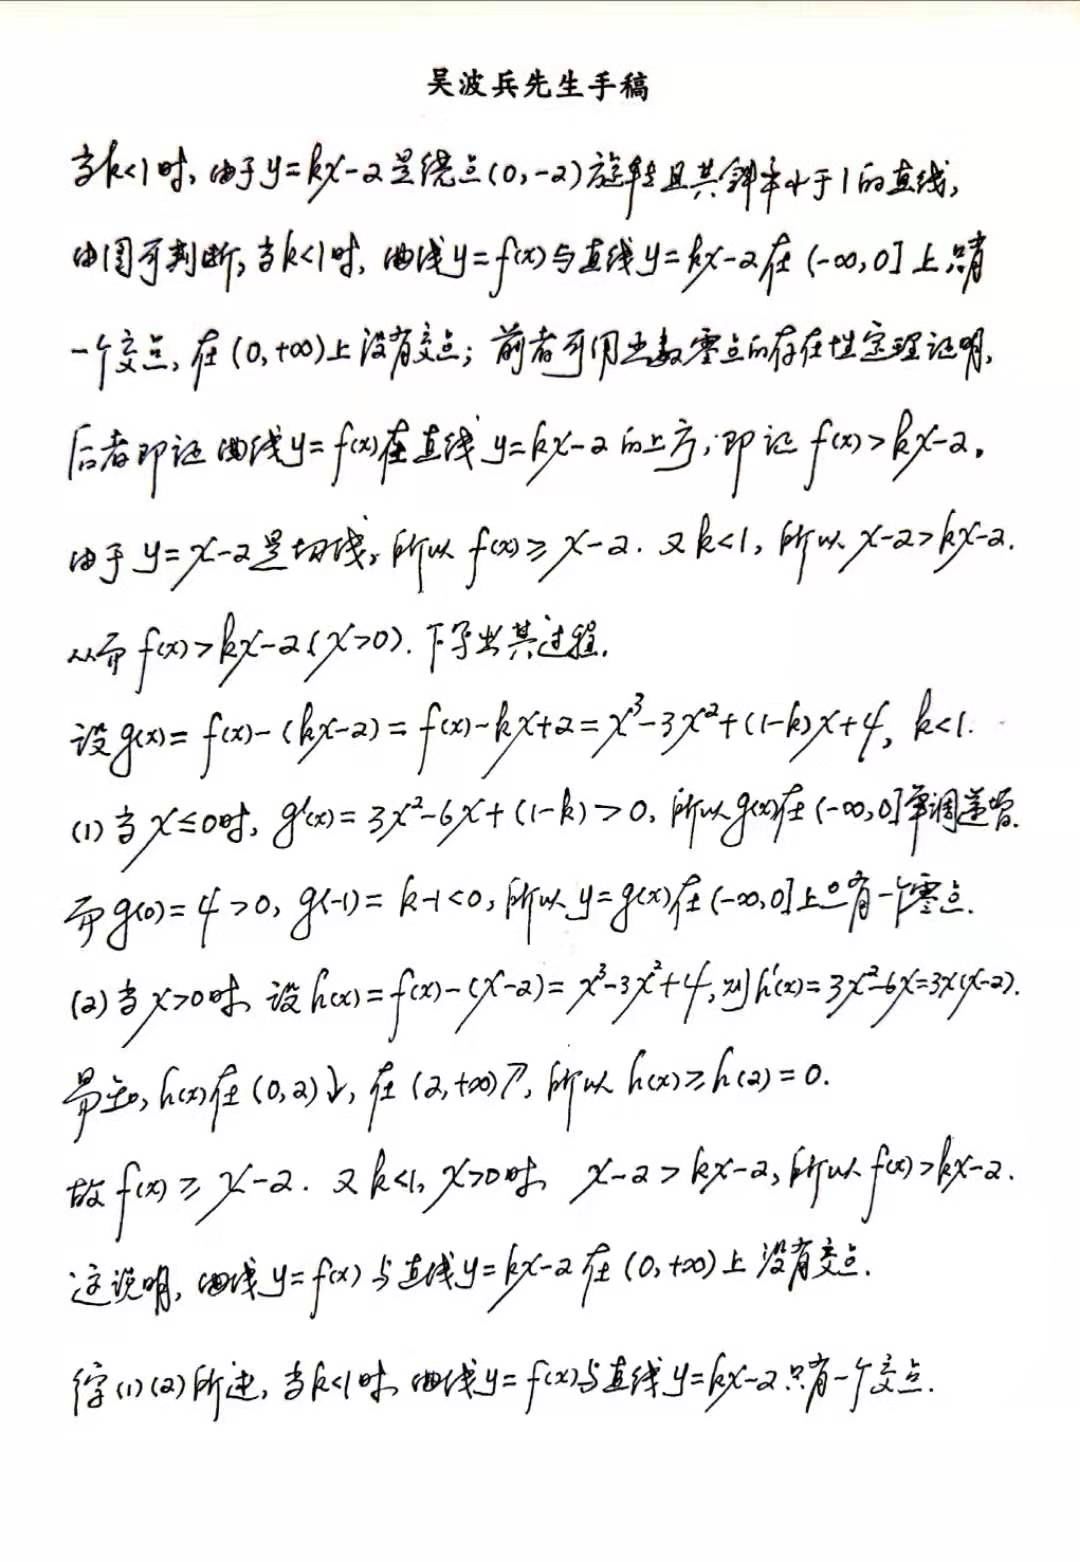 吴波兵先生手稿
当k<1时,由于y=kx-2是绕点(0,-2)旋转且其斜率小于1的直线,
由图可判断,当k<1时,曲线y=f(x)与直线y=kx-2在(-∞,0]上只有
一个交点,在(0,+∞)上没有交点;前者可用函数零点的存在性定理证明,
后者即证曲线y=f(x)在直线y=kx-2的上方,即证f(x)>kx-2.
由于y=x-2是切线,所以f(x)≥x-2.又k<1,所以x-2>kx-2.
从而f(x)>kx-2(x>0).下写出其过程.
设g(x)=f(x)-(kx-2)=f(x)-kx+2=x³-3x²+(1-k)x+4, k<1.
(1)当x≤0时,g'(x)=3x²-6x+(1-k)>0,所以g(x)在(-∞,0]单调递增.
而g(0)=4>0,g(-1)=k-1<0,所以y=g(x)在(-∞,0]上只有一个零点.
(2)当x>0时,设h(x)=f(x)-(x-2)=x³-3x²+4,则h'(x)=3x²-6x=3x(x-2).
易知,h(x)在(0,2)↓,在(2,+∞)↗,所以h(x)≥h(2)=0.
故f(x)≥x-2.又k<1,x>0时,x-2>kx-2,所以f(x)>kx-2.
这说明,曲线y=f(x)与直线y=kx-2在(0,+∞)上没有交点.
综(1)(2)所述,当k<1时,曲线y=f(x)与直线y=kx-2只有一个交点.